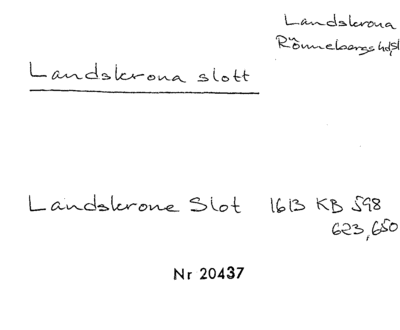 Landskrona
Rönnebergs hd, sl
Landskrona slott
Landskrone Slot 1613 KB 598
623, 650
Nr 20437